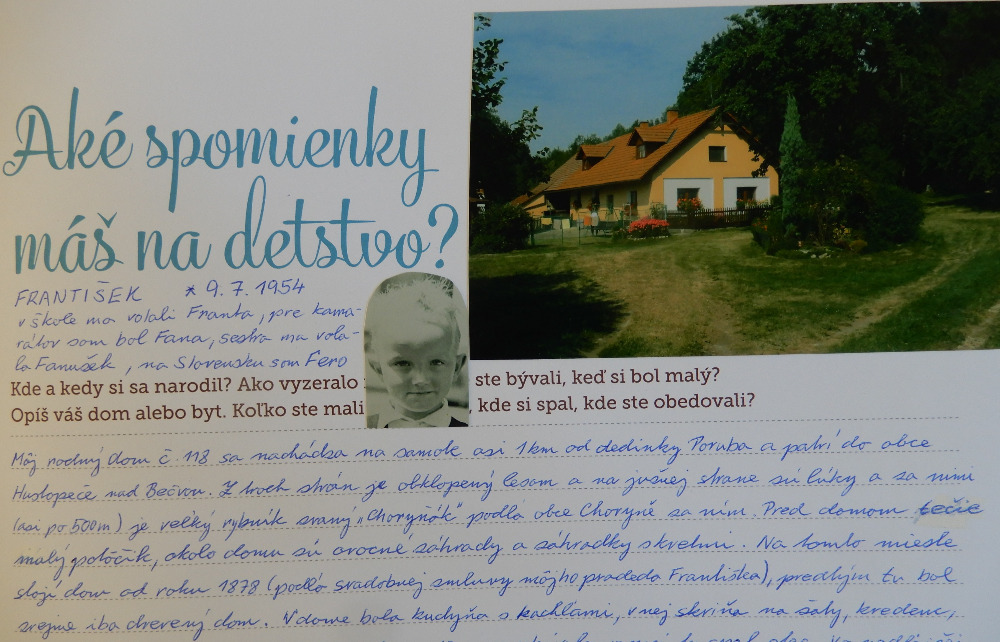 Aké spomienky
máš na detstvo?
FRANTIŠEK * 9. 7. 1954
v škole ma volali Franta, pre kama-
rátov som bol Fana, sestra ma vola-
la Fanušek, na Slovensku som Fero
Kde a kedy si sa narodil? Ako vyzeralo ste bývali, keď si bol malý?
Opíš váš dom alebo byt. Koľko ste mali , kde si spal, kde ste obedovali?
Môj rodný dom č. 118 sa nachádza na samote asi 1km od dedinky Poruba a patrí do obce
Hustopeče nad Bečvou. Z troch strán je obklopený lesom a na južnej strane sú lúky a za nimi
(asi po 500m) je veľký rybník zvaný „Choryňák" podľa obce Choryně za ním. Pred domom tečie
malý potôčik, okolo domu sú ovocné záhrady a záhradky s kvetmi. Na tomto mieste
stojí dom od roku 1878 (podľa svadobnej zmluvy môjho pradeda Františka), predtým tu bol
zrejme iba drevený dom. V dome bola kuchyňa s kachlami, v nej skriňa na šaty, kredenc,